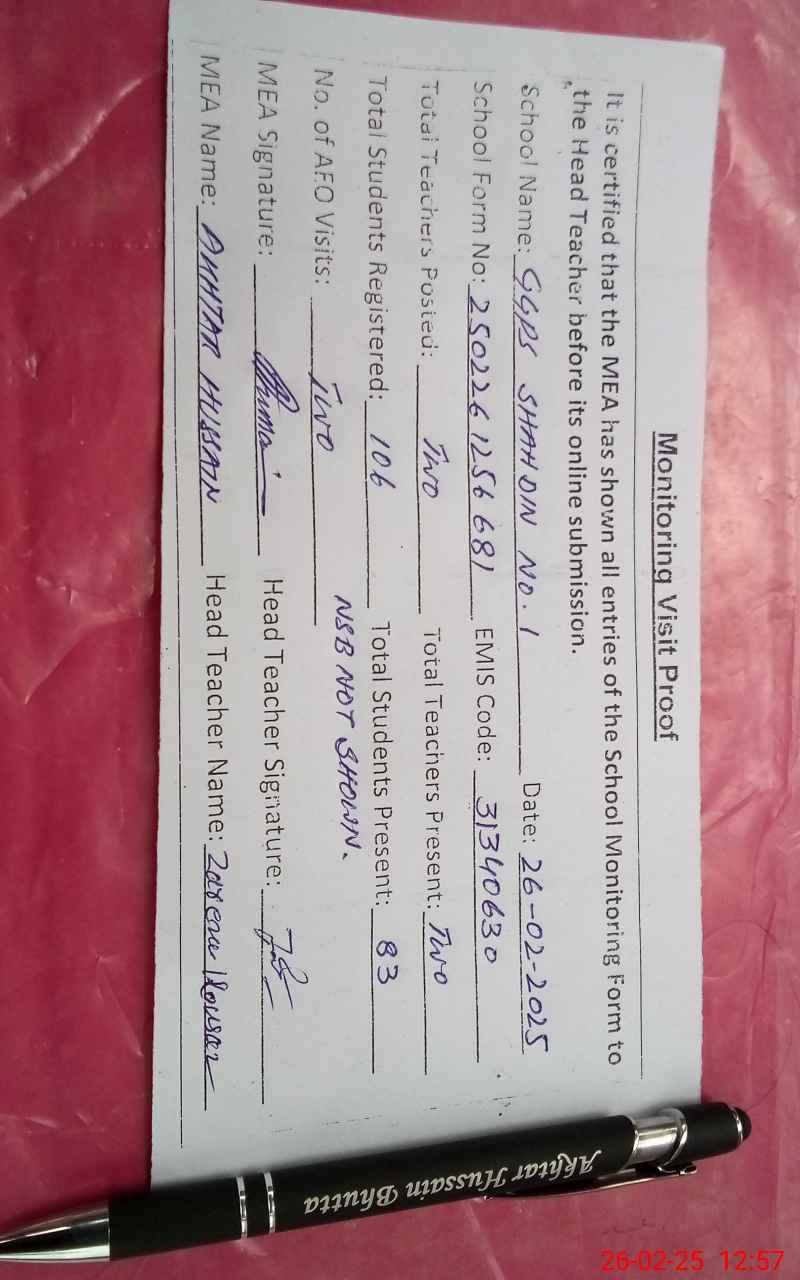 Monitoring Visit Proof
It is certified that the MEA has shown all entries of the School Monitoring Form to
the Head Teacher before its online submission.
School Name: GGPS SHAH DIN No. 1 Date: 26-02-2025
School Form No: 250226 1256 681 EMIS Code: 31340630
Total Teachers Posted: Two Total Teachers Present: Two
Total Students Registered: 106 Total Students Present: 83
No. of AEO Visits: Two NSB NOT SHOWN.
MEA Signature: Head Teacher Signature:
MEA Name: AKHTAR HUSSAIN Head Teacher Name: Kousar
Akhtar Hussain Bhutta
26-02-25 12:57